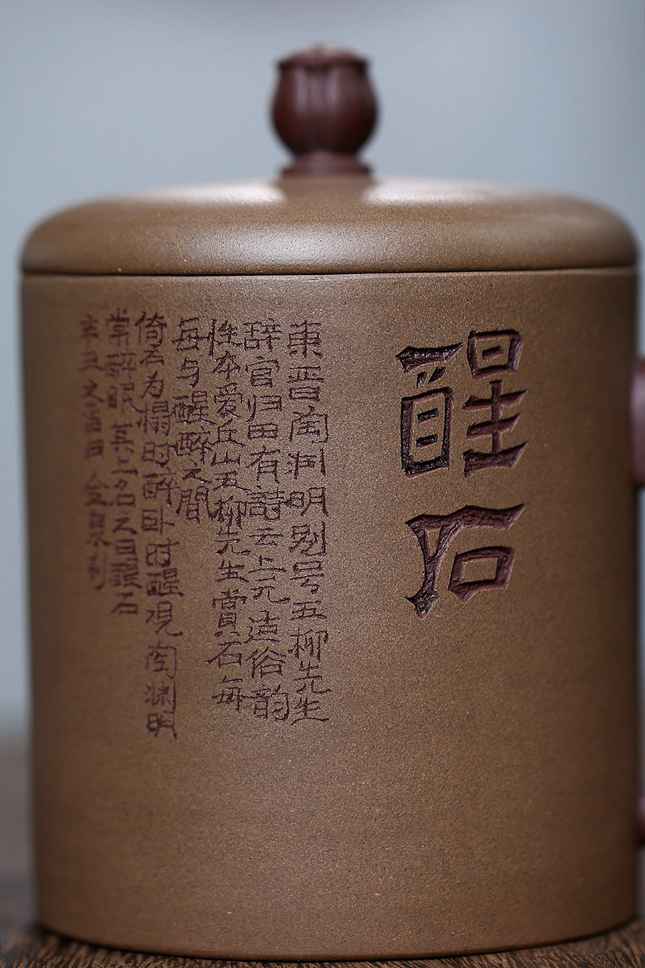 醒石
東晋陶渊明别号五柳先生
辞官归田有詩云少无适俗韵
性本爱丘山五柳先生賞石每
每与醒醉之間
倚石为榻时醉卧时醒观陶渊明
醉眠其上名之曰醒石